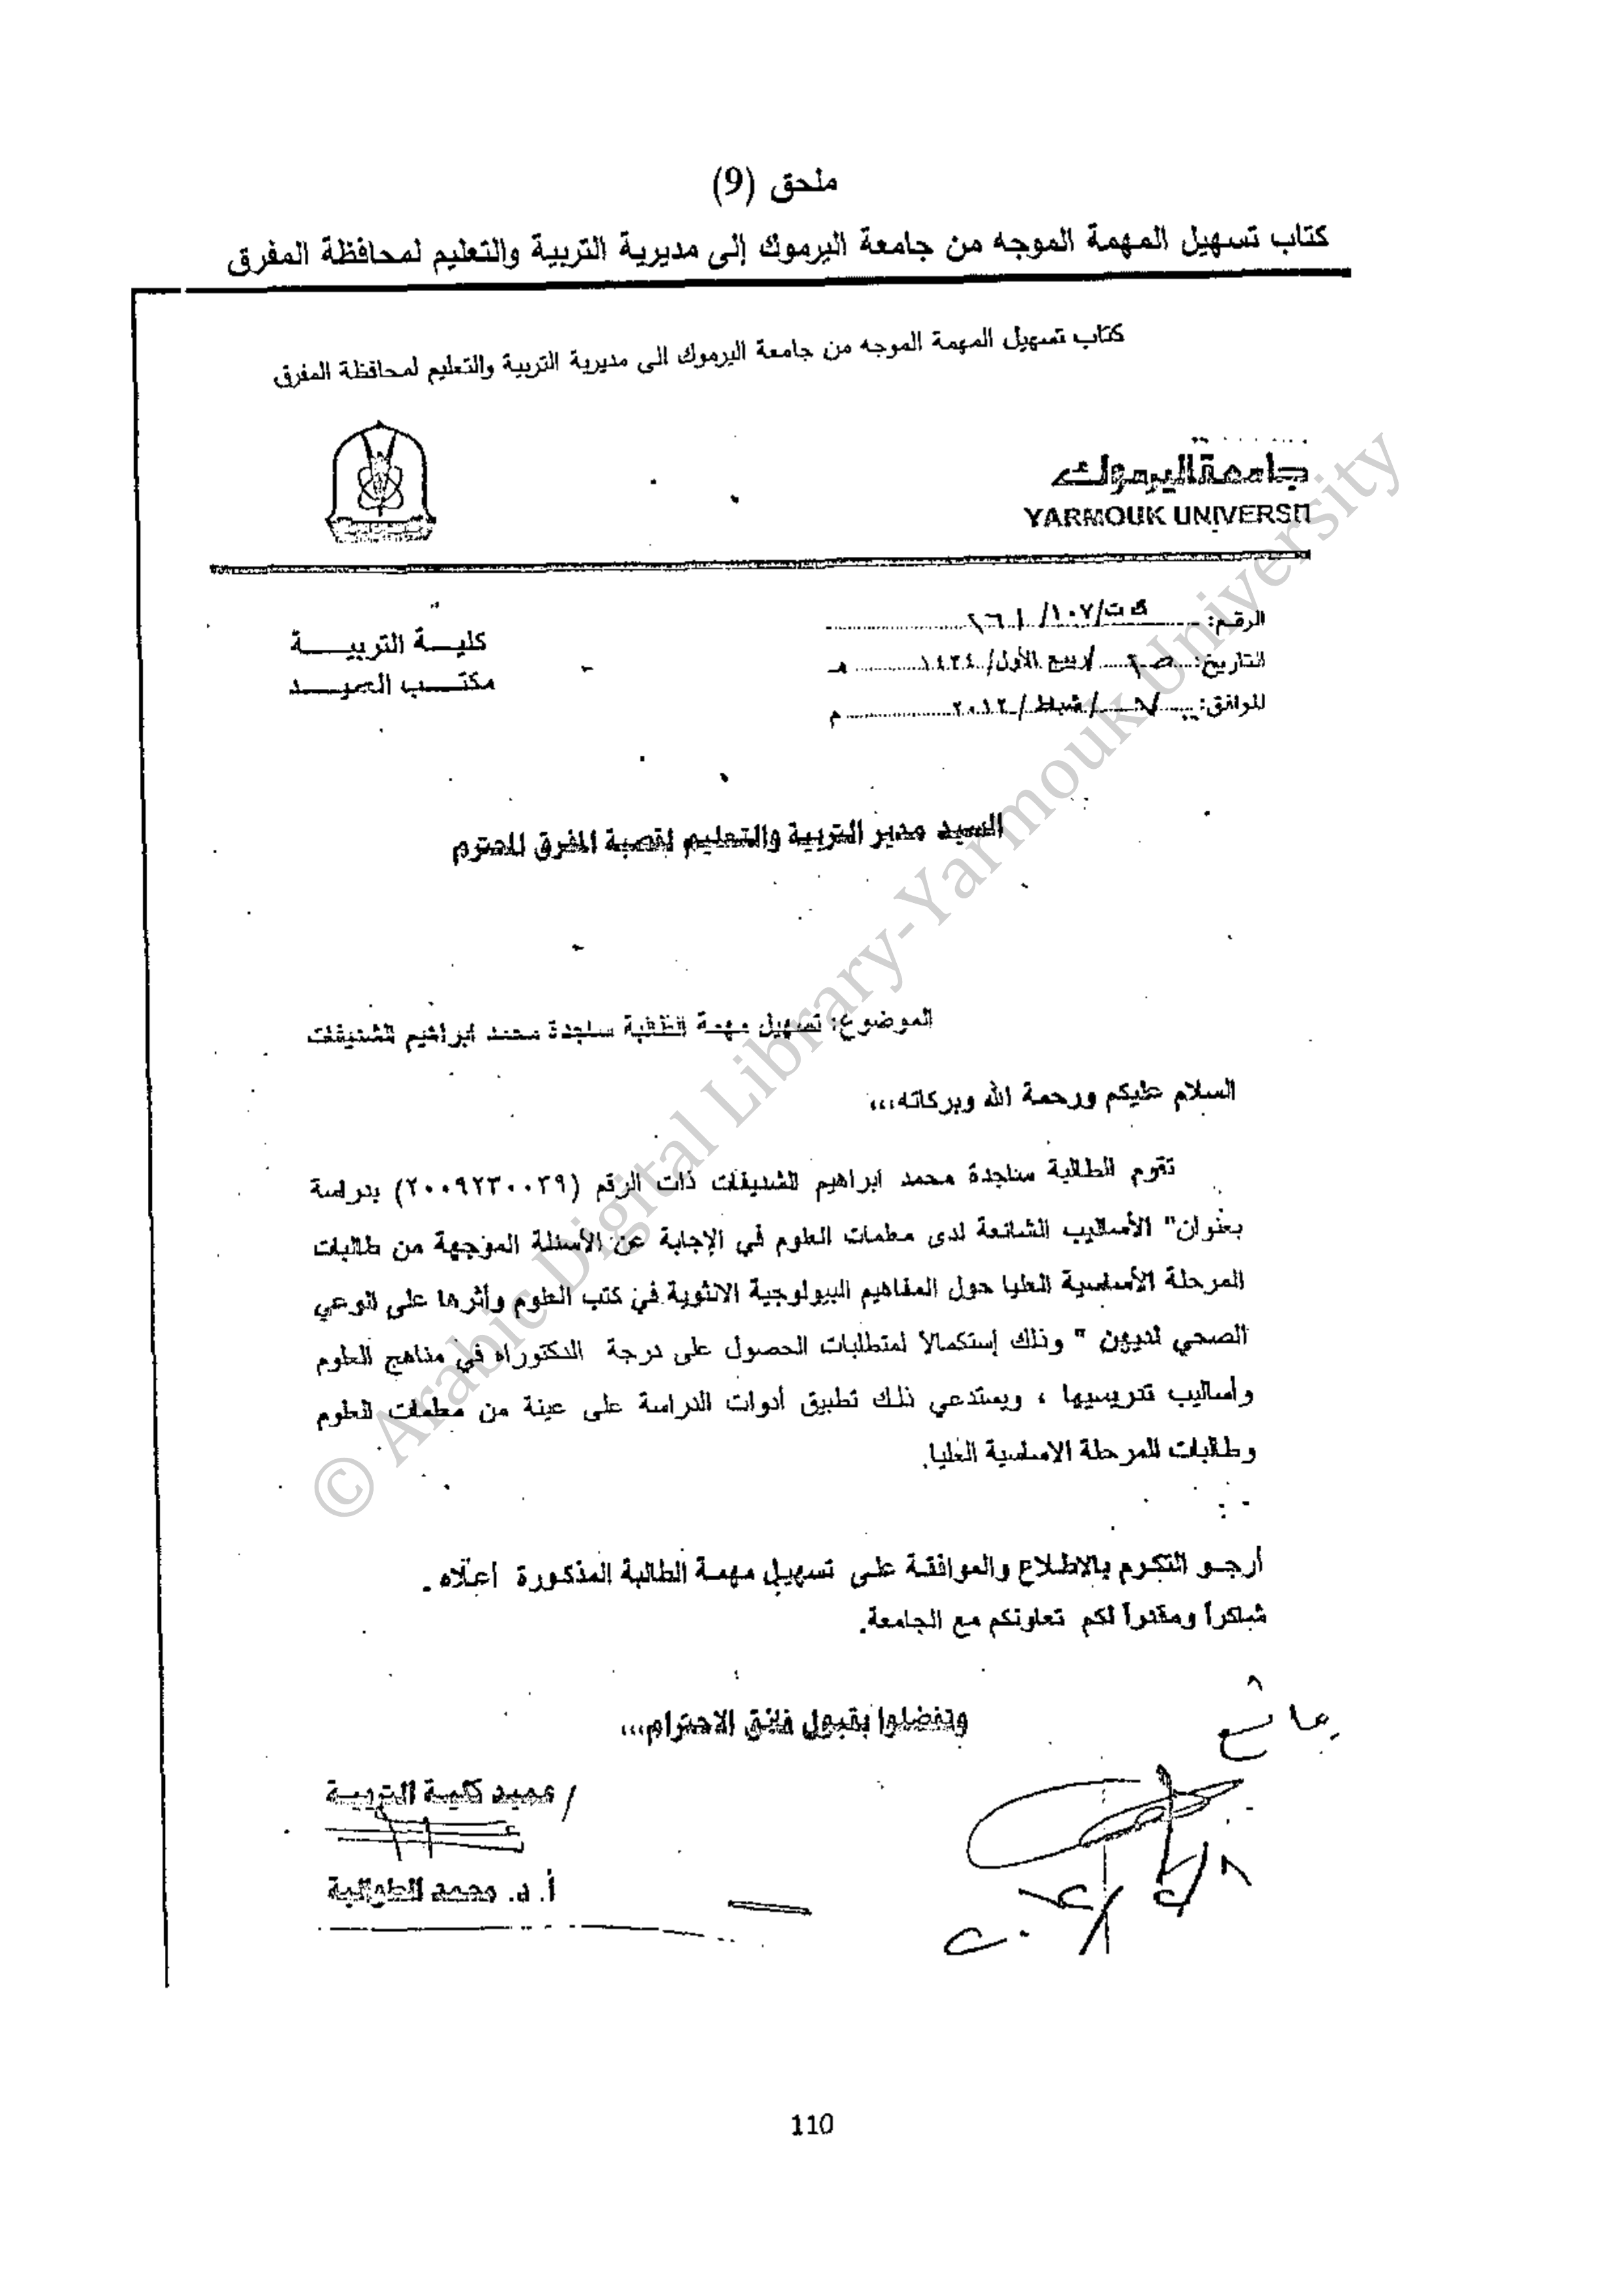 ملحق (9)
كتاب تسهيل المهمة الموجه من جامعة اليرموك إلى مديرية التربية والتعليم لمحافظة المفرق
كتاب تسهيل المهمة الموجه من جامعة اليرموك الى مديرية التربية والتعليم لمحافظة المفرق
جامعة اليرموك
YARMOUK UNIVERSIT
الرقم: ك ت/١٠٧/
التاريخ: /ربيع الأول/١٤٣٤ هـ
الموافق: /شباط/٢٠١٣ م
كليـــة التربيــــــة
مكتـــب العميــــد
السيد مدير التربية والتعليم لقصبة المفرق المحترم
الموضوع: تسهيل مهمة الطالبة ساجدة محمد ابراهيم الشديفات
السلام عليكم ورحمة الله وبركاته،،،
تقوم الطالبة ساجدة محمد ابراهيم الشديفات ذات الرقم (٢٠٠٩٢٣٠٠٣٩) بدراسة
بعنوان" الأساليب الشائعة لدى معلمات العلوم في الإجابة عن الأسئلة الموجهة من طالبات
المرحلة الأساسية العليا حول المفاهيم البيولوجية الانثوية في كتب العلوم وأثرها على الوعي
الصحي لديهن " وذلك إستكمالا لمتطلبات الحصول على درجة الدكتوراه في مناهج العلوم
وأساليب تدريسيها ، ويستدعي ذلك تطبيق أدوات الدراسة على عينة من معلمات العلوم
وطالبات المرحلة الاساسية العليا.
أرجــو التكـرم بالاطـلاع والموافقـة علـى تسهيـل مهمـة الطالبة المذكـورة اعـلاه .
شاكراً ومقدراً لكم تعاونكم مع الجامعة.
وتفضلوا بقبول فائق الاحترام،،،
/ عميد كلية التربية
أ. د. محمد الطوالبة
110
© Arabic Digital Library-Yarmouk University